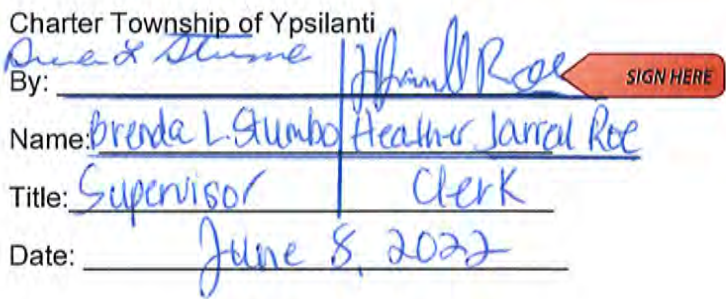 Charter Township of Ypsilanti
By: Brenda L. Stumbo HJarrell Roe SIGN HERE
Name: Brenda L. Stumbo Heather Jarrell Roe
Title: Supervisor Clerk
Date: June 8, 2022